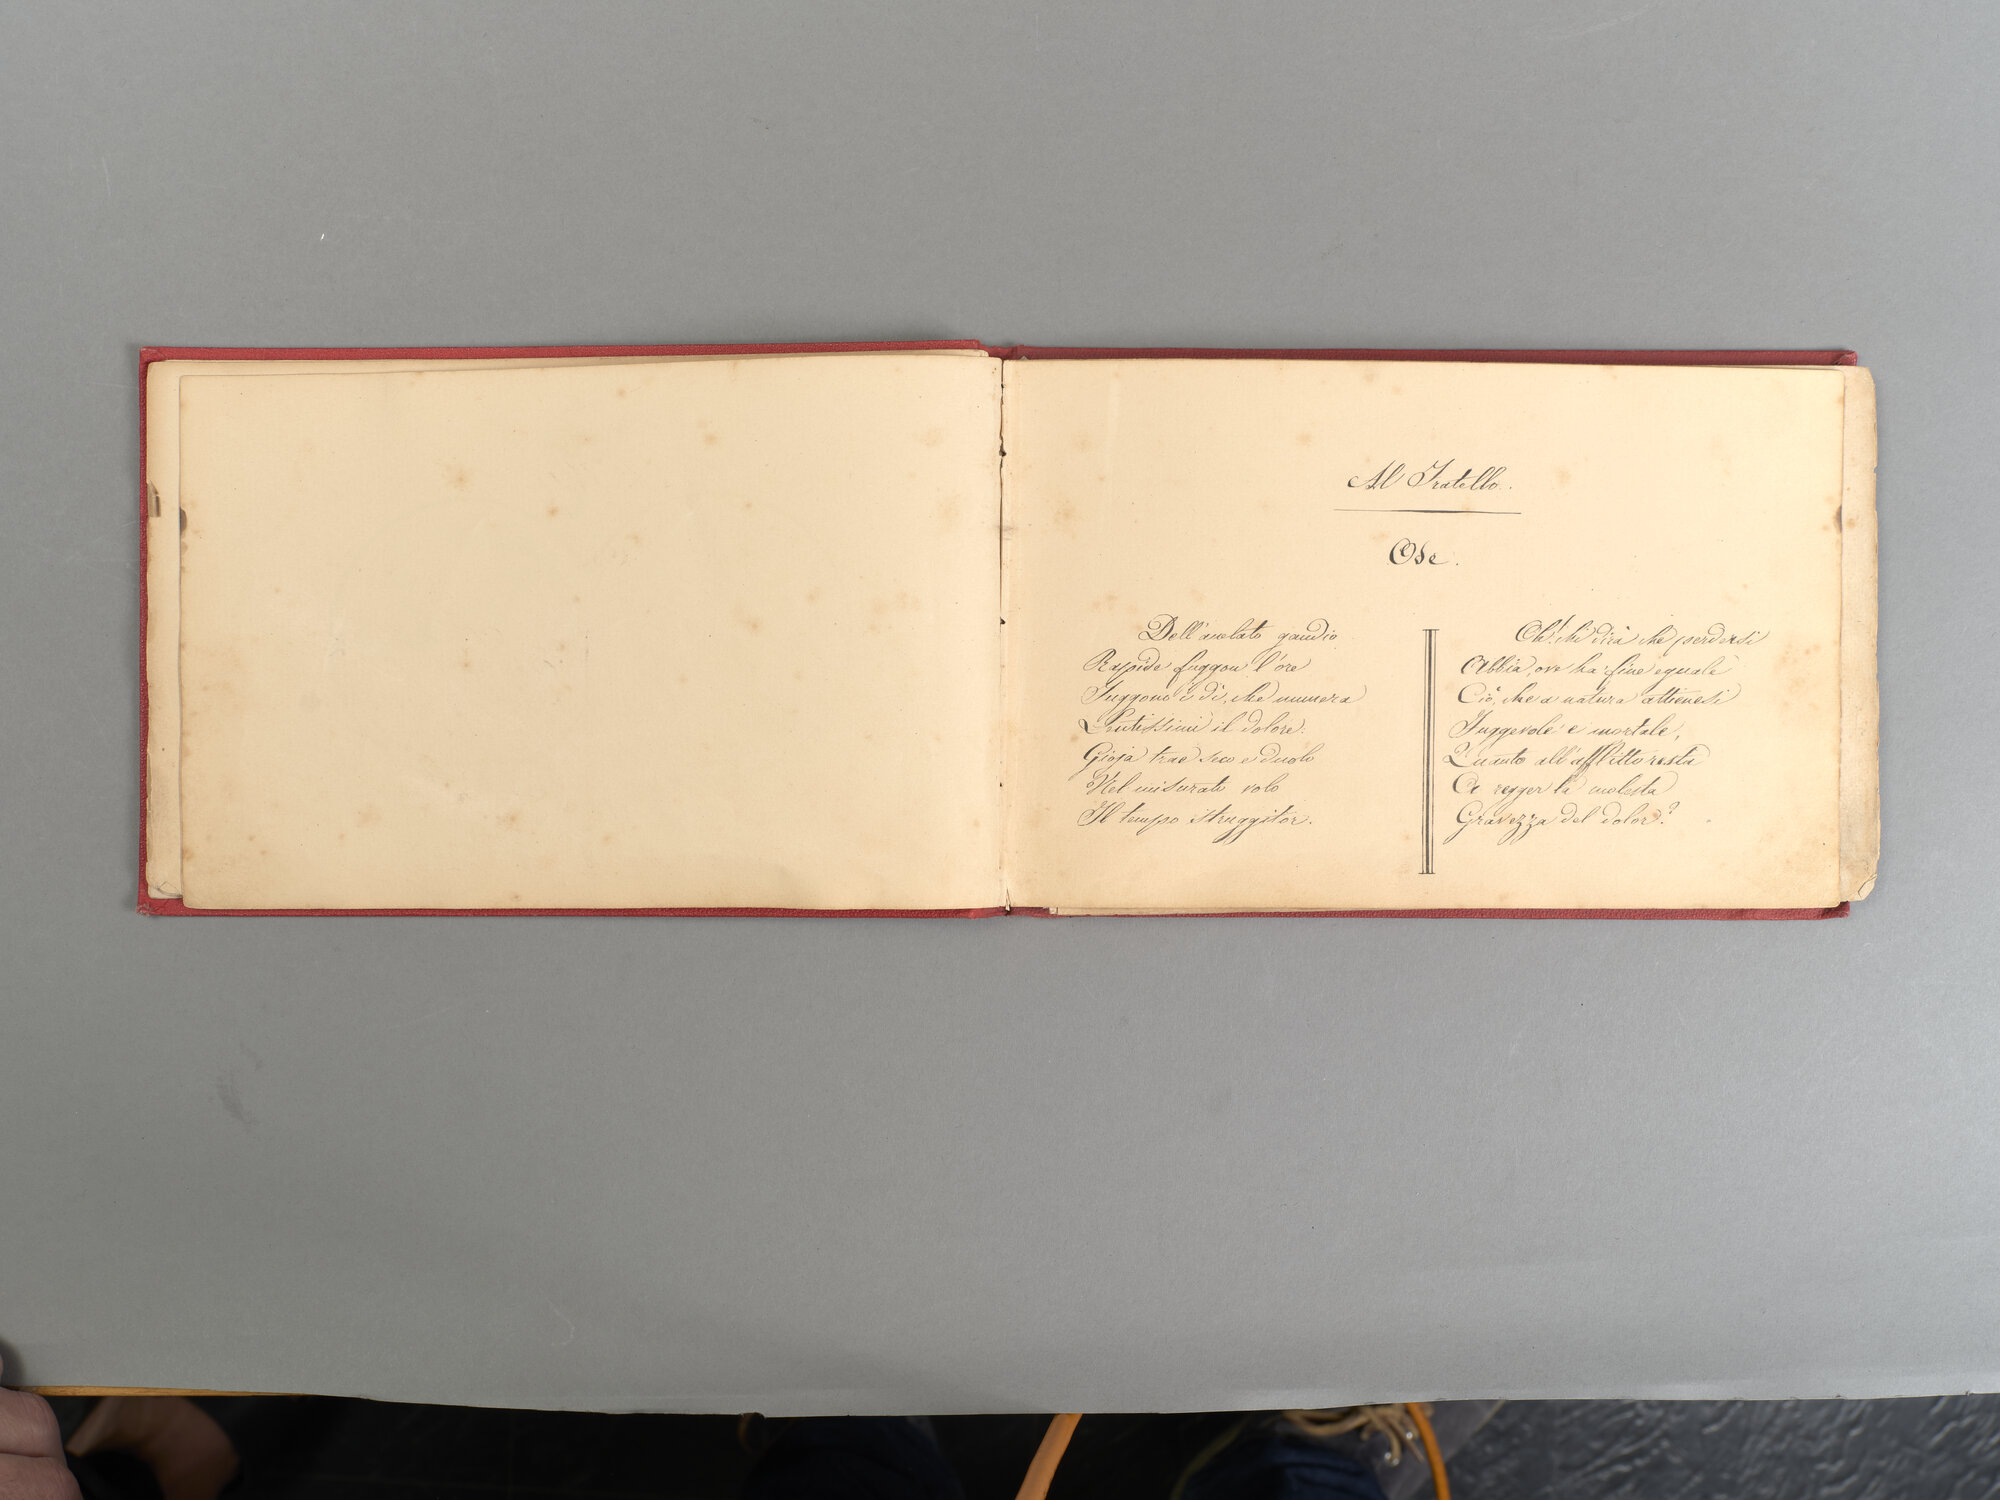 Al Fratello.
Ode.
Dell'anelato gaudio
Rapide fuggon l'ore
Fuggono i dì, che numera
Lentissimi il dolore:
Gioja trae seco e duolo
Nel misurato volo
Il tempo struggitor.
Oh! chi dirà che perdersi
Abbia, ove ha fine eguale
Ciò, che a natura attiensi
Fuggevole e mortale,
Quanto all'afflitto resta
A regger la molesta
Gravezza del dolor?